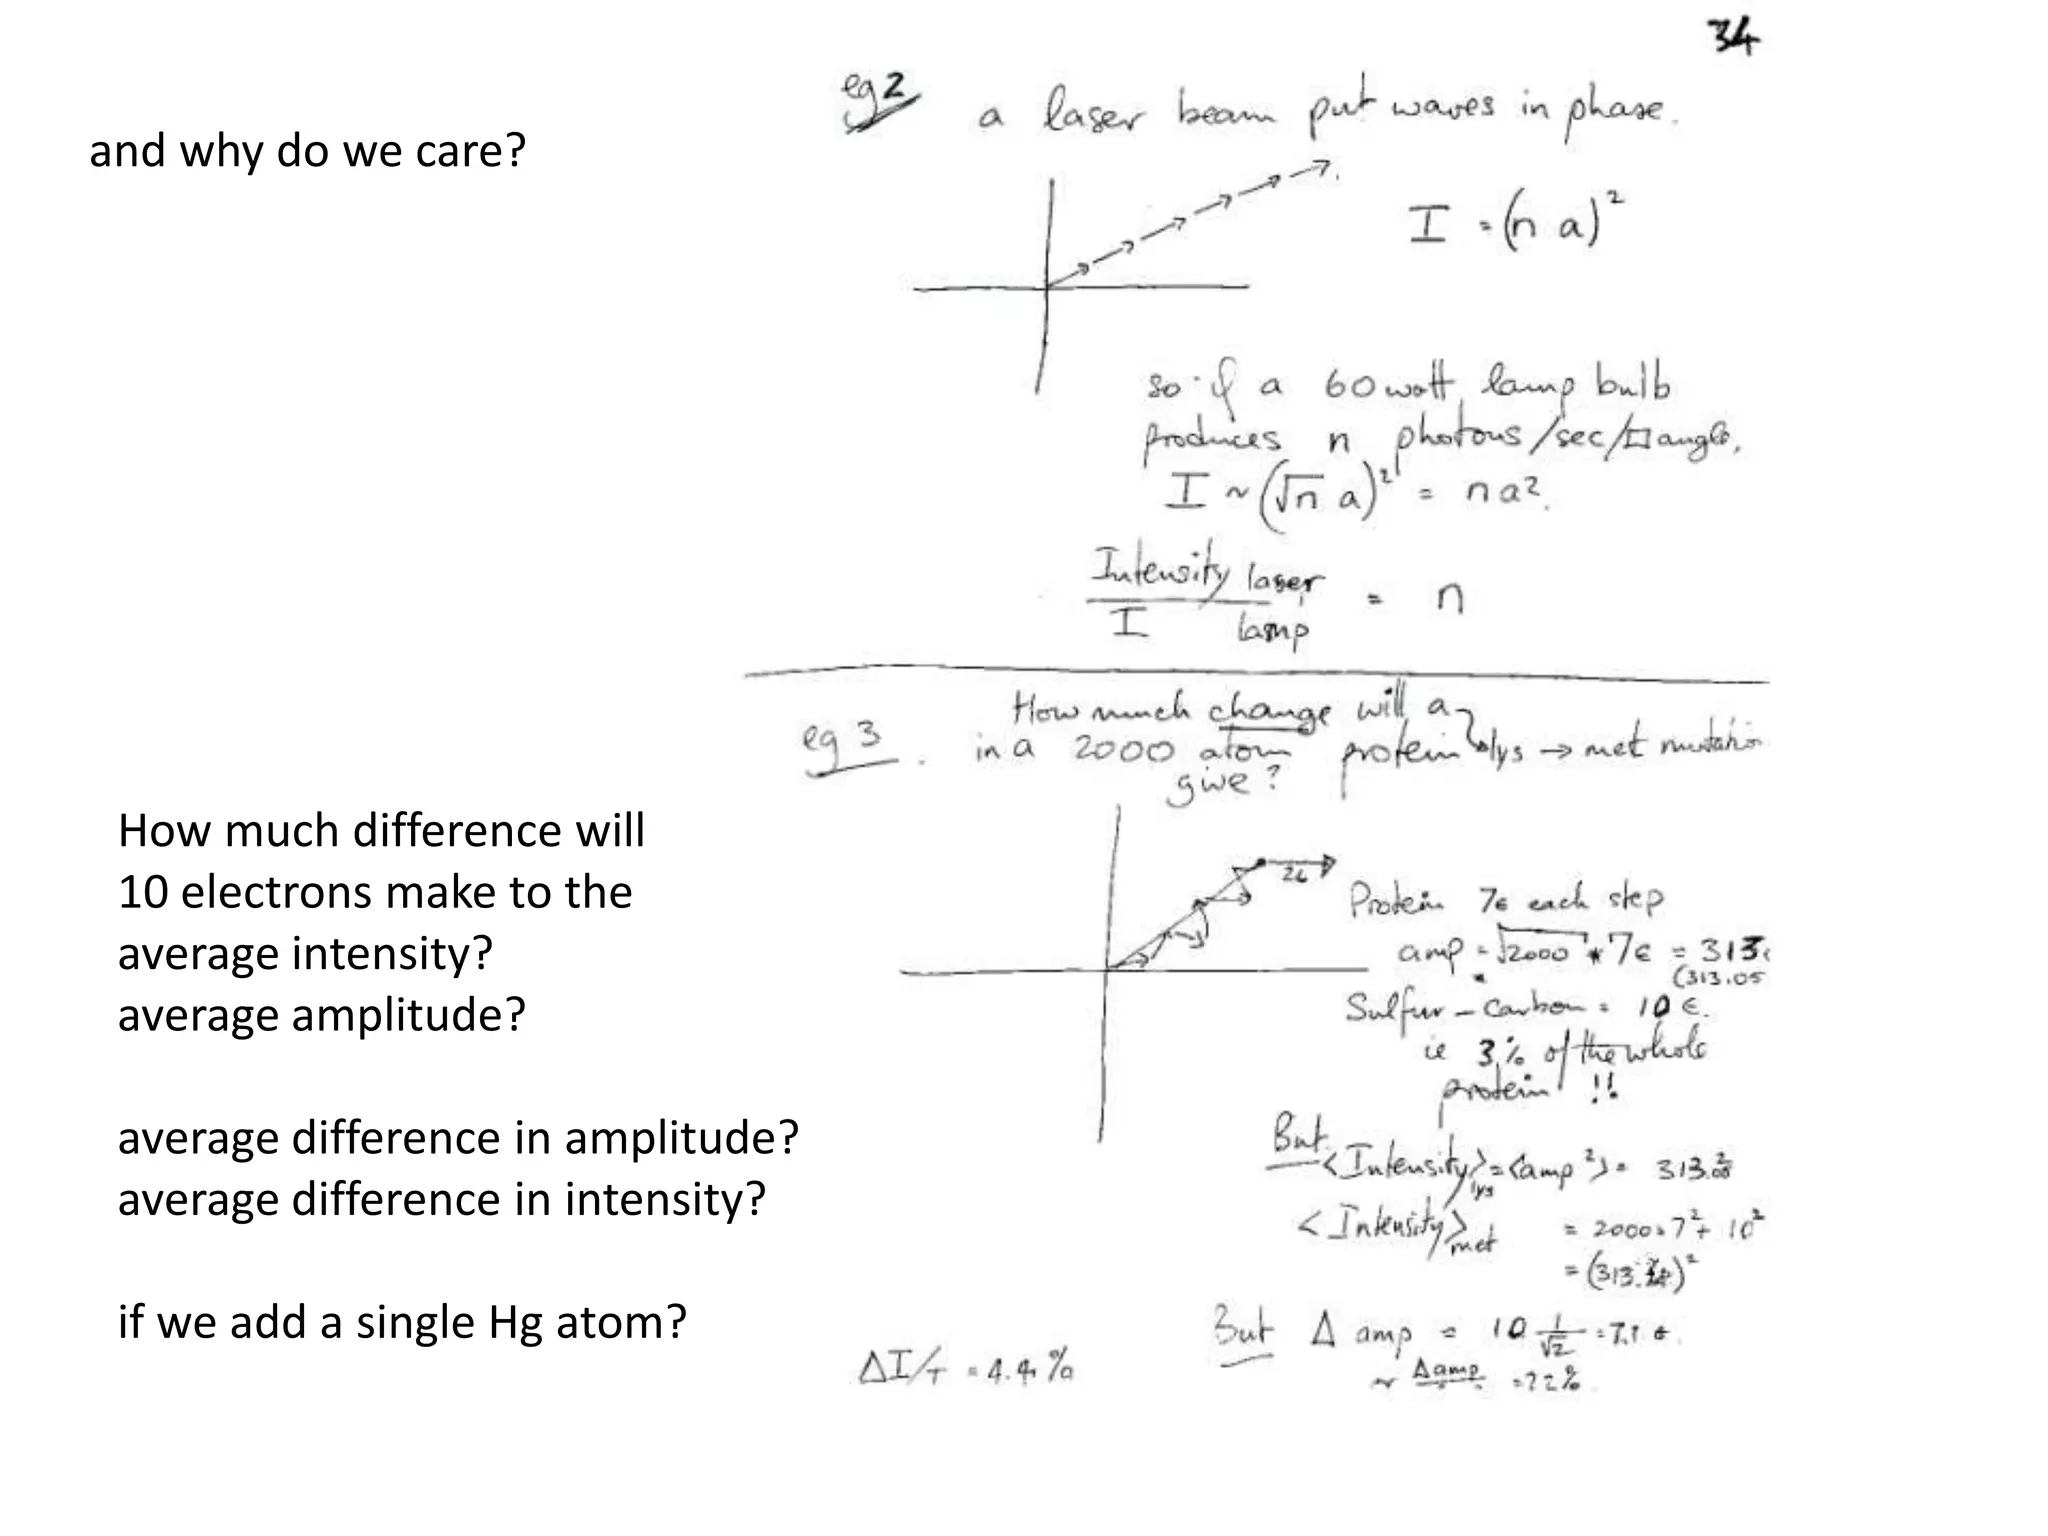 34
and why do we care?
eg 2 a laser beam put waves in phase.
I = (n a)²
so if a 60 watt lamp bulb
produces n photons/sec/□ angle.
I ~ (√n a)² = na².
Intensity laser / I lamp = n
eg 3. How much change will a
in a 2000 atom protein lys → met mutatio
give?
26
Protein 7e each step
amp = √2000 * 7e = 313
(313.05
Sulfur - Carbon = 10 e.
ie 3% of the whole
protein !!
But
<Intensity>lys = <amp²> =
<Intensity>met = 2000 * 7² + 10²
But Δ amp = 10 1/√2 = 7.1 e.
~ Δamp
ΔI/I = 4.4%
How much difference will
10 electrons make to the
average intensity?
average amplitude?
average difference in amplitude?
average difference in intensity?
if we add a single Hg atom?